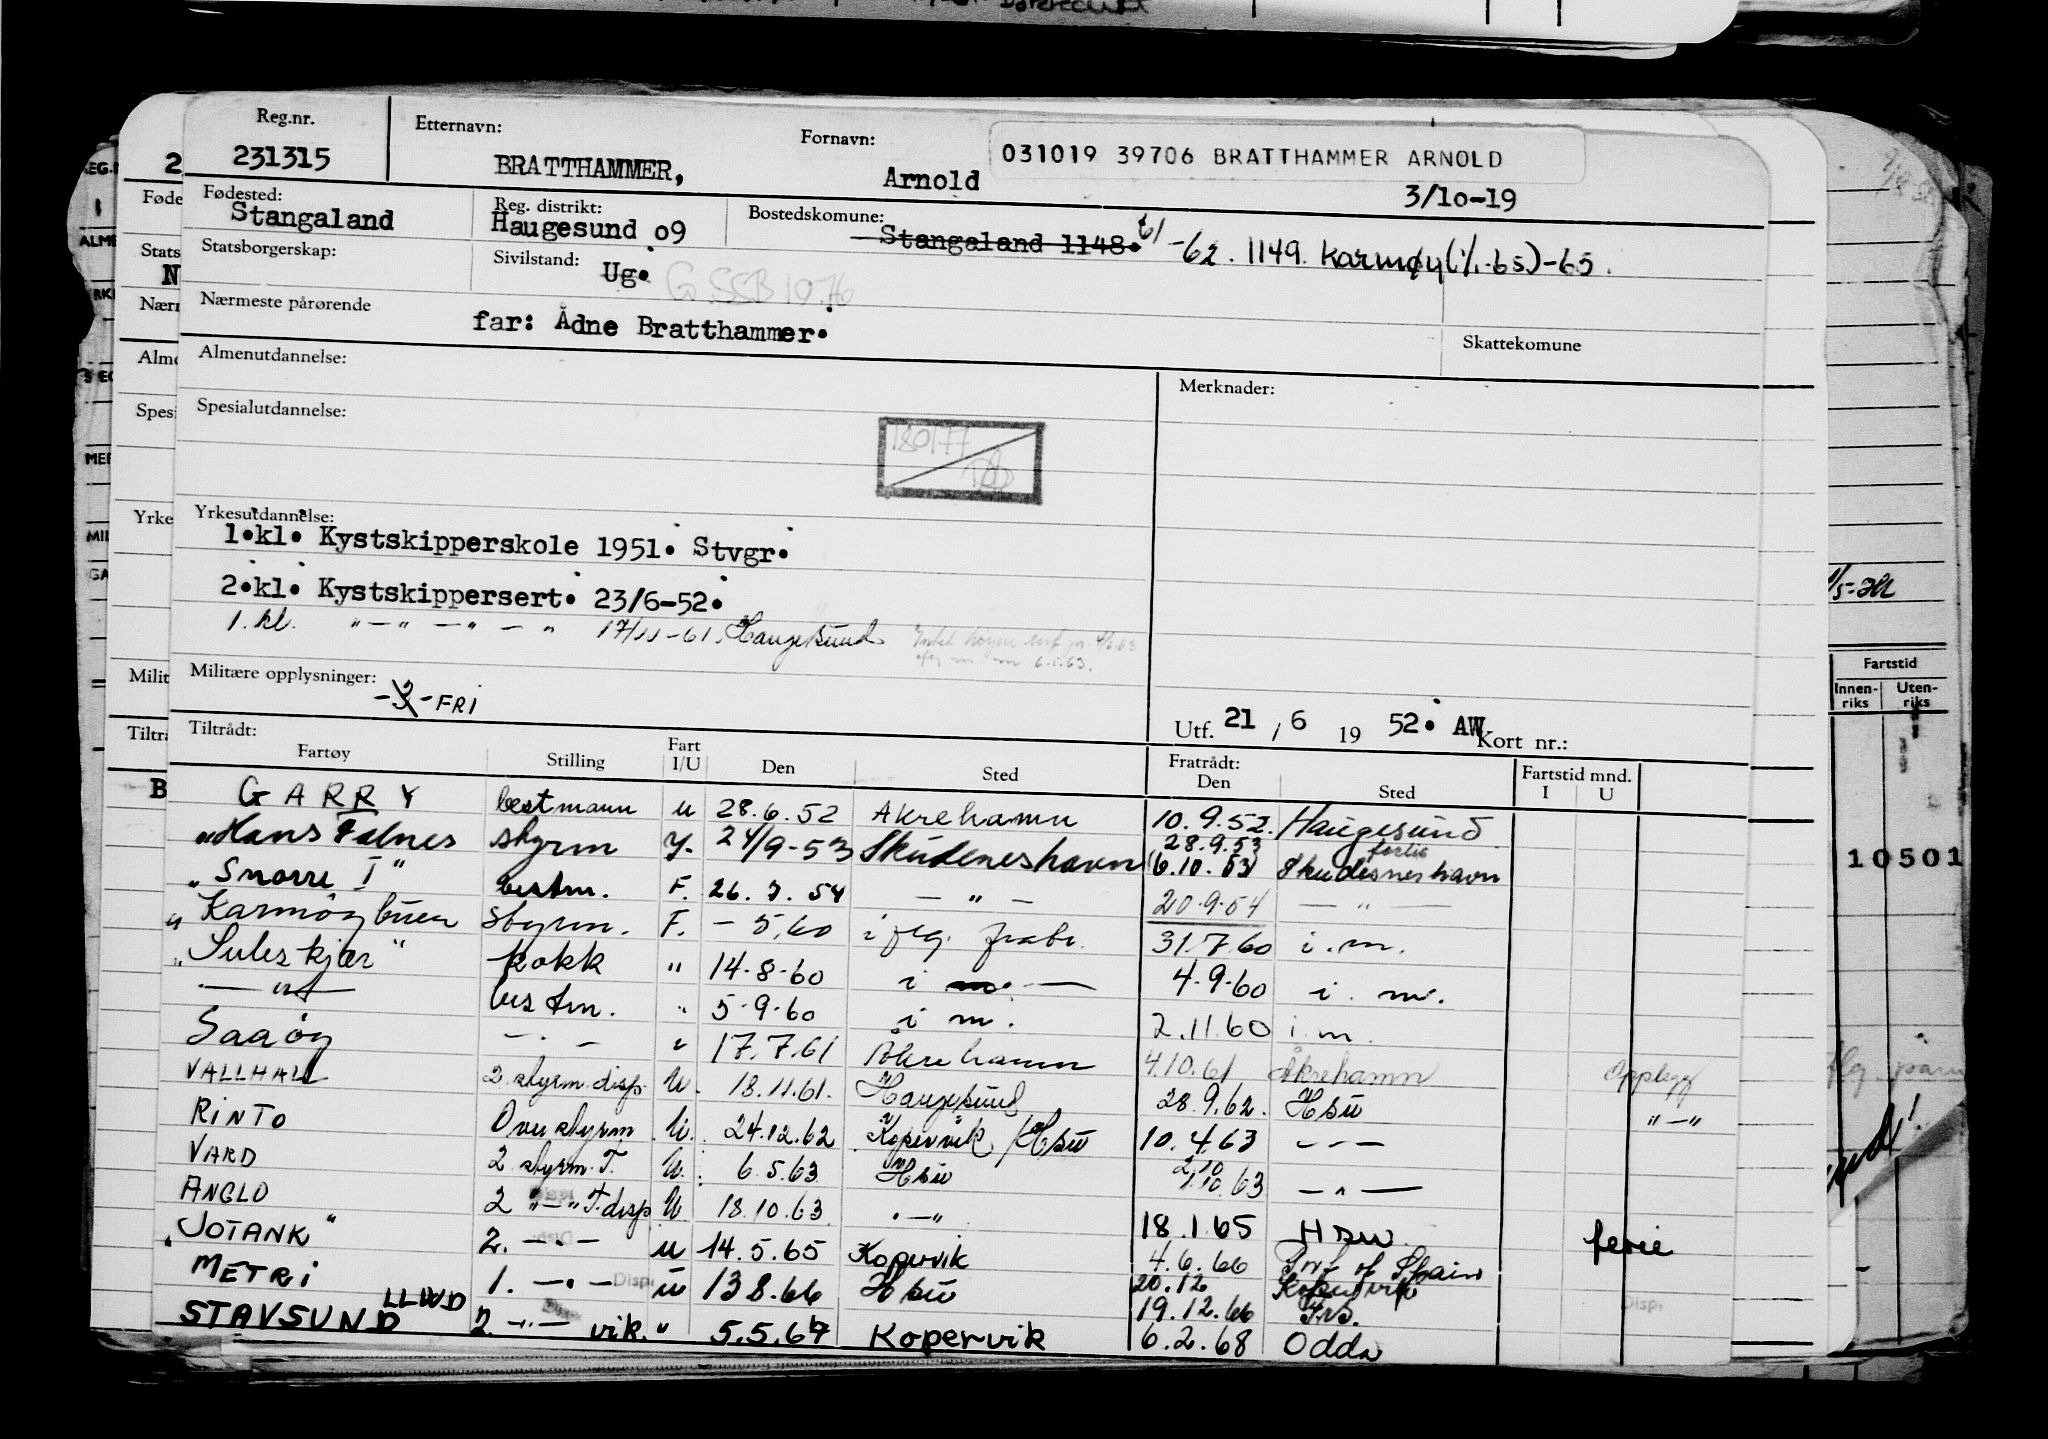 Reg.nr. Etternavn: Fornavn: 031019 39706 BRATTHAMMER ARNOLD
231315 BRATTHAMMER, Arnold 3/10-19
Fødested: Reg. distrikt: Bostedskomune:
Stangaland Haugesund 09 Stangaland 1148. 61-62. 1149. Karmøy (1/1-65)-65.
Statsborgerskap: Sivilstand: Ug. G SSB 10.76
Nærmeste pårørende far: Ådne Bratthammer.
Skattekomune
Almenutdannelse: Merknader:
Spesialutdannelse:
180177
Yrkesutdannelse:
1.kl. Kystskipperskole 1951. Stvgr.
2.kl. Kystskippersert. 23/6-52.
1. kl. "-" -"- " 17/11-61. Haugesund
Militære opplysninger: -2- FRI
Utf. 21 / 6 19 52. AW Kort nr.:
Tiltrådt: Fratrådt: Fartstid mnd.
Fartøy Stilling Fart I/U Den Sted Den Sted I U
GARRY bestmann u 28.6.52 Akrehamn 10.9.52. Haugesund
"Hans Falnes styrm 24/9-53 Skudeneshavn 28.9.53 6.10.53 Skudesneshavn
"Snorre I" bestm. F. 26.7.54 - " - 20.9.54 - " -
"Karmøybuen styrm. F. - 5.60 i flg. fratr. 31.7.60 i.m.
"Suleskjær" kokk " 14.8.60 i m. 4.9.60 i. m.
- " - bestm. " 5.9.60 i m. 2.11.60 i m
Saaøy - . - " 17.7.61 Åkrehamn 4.10.61 Åkrehamn
VALLHALL 2. styrm. disp. U. 18.11.61. Haugesund 28.9.62. Hsu Opplegg
RINTO Overstyrm U. 24.12.62 Kopervik / Hsu 10.4.63 - - - "-"
VARD 2 styrm. T. U. 6.5.63 Hsu 2.10.63 - " -
ANGLO 2 "-" T. disp U. 18.10.63 "-" 18.1.65 Hsu. ferie
"JOTANK" 2. - " - u 14.5.65 Kopervik 4.6.66 Prt of Spain
METRI 1. - " - Disp u 13.8.66 Hsu 20.12 Kopervik
19.12.66
STAVSUND LLWD 2. - " - vik. " 5.5.67 Kopervik 6.2.68 Odda
Fartstid
Innenriks Utenriks
10501